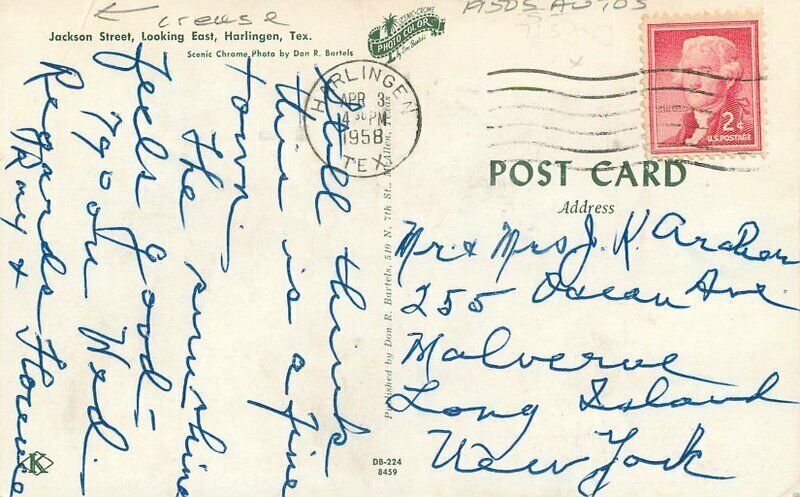 ← crease
1950s Autos
Jackson Street, Looking East, Harlingen, Tex.
Scenic Chrome Photo by Don R. Bartels
SCENIC-CHROME
PHOTO COLOR
by Don Bartels
HARLINGEN
APR 3
4 30 PM
1958
TEX.
2¢
U.S. POSTAGE
POST CARD
Address
Still think
this is a fine
town.
The sunshine
feels good =
70 on Wed.
Regards
Ray & Florence
Published by Don R. Bartels, 510 N. 7th St., McAllen, Texas
Mr & Mrs J. K. Archer
255 Ocean Ave.
Malverne
Long Island
New York
K
DB-224
8459